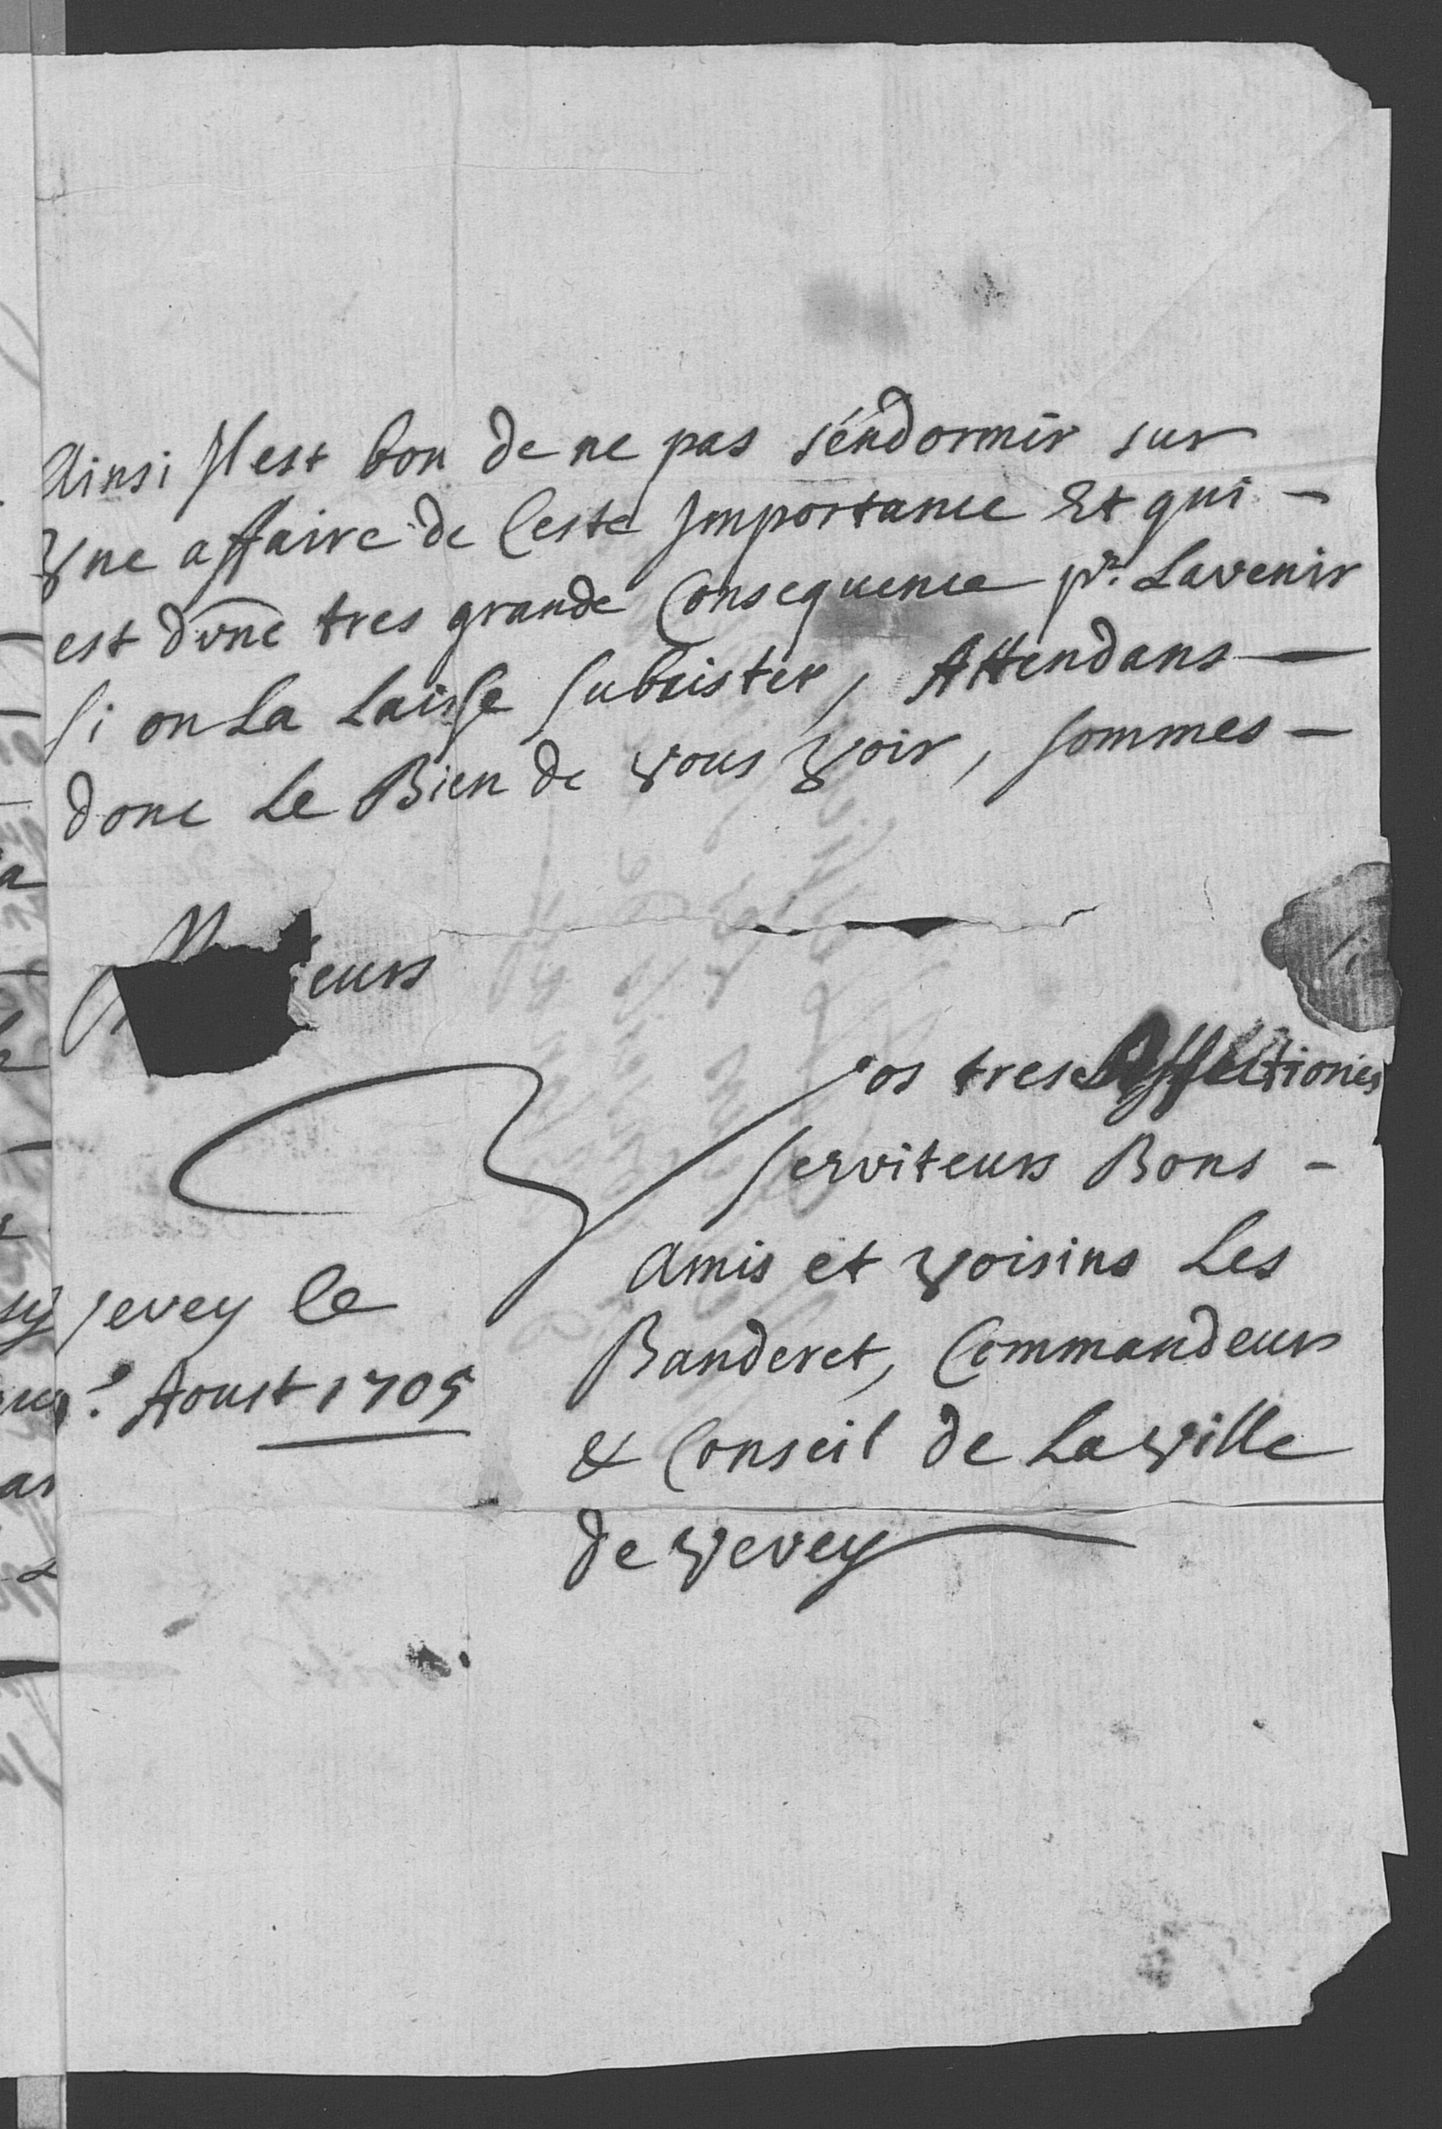 Ainsi Il est bon de ne pas s'endormir sur
Une affaire de Ceste Importance Et qui -
est d'vne tres grande Consequence pr. Lavenir
Si on La Laisse Subsister, Attendans -
donc Le Bien de vous voir, sommes -
eurs
Vos tres Affectionés
Serviteurs Bons -
Amis et voisins Les
Banderet, Commandeurs
& Conseil de La ville
de Vevey
Vevey le
Aoust 1705